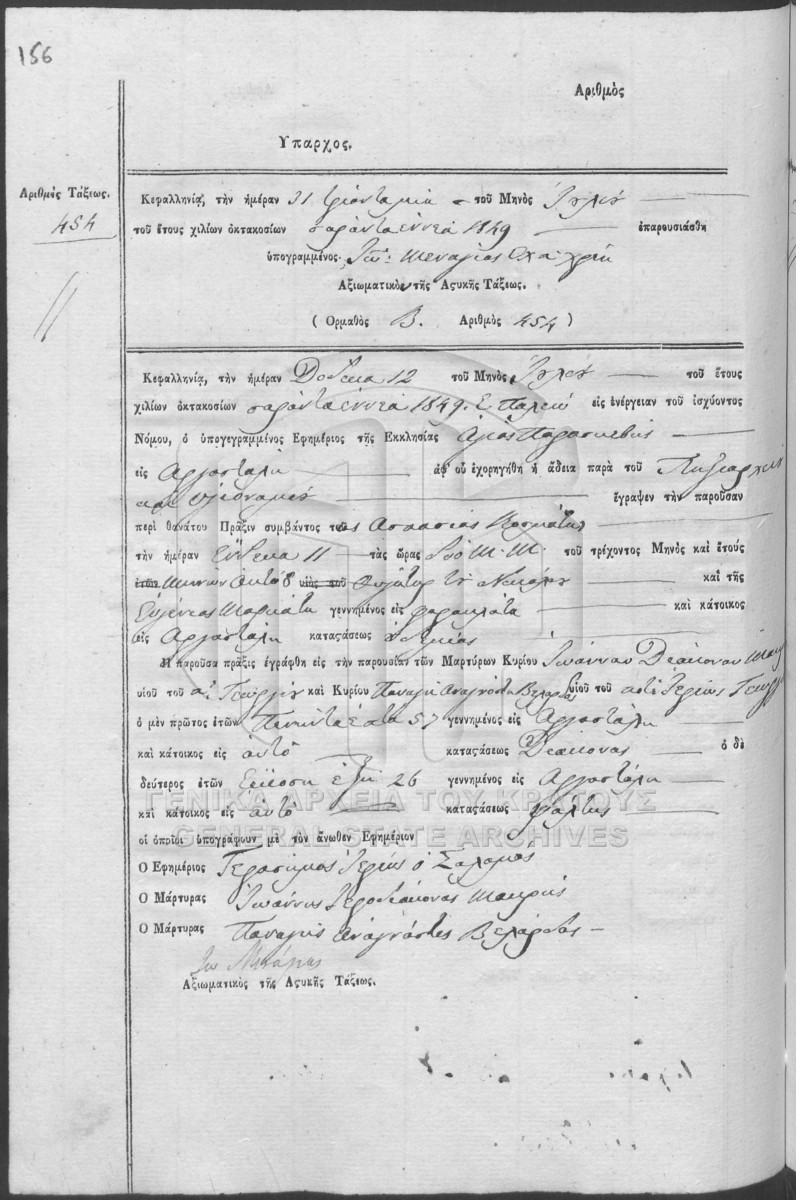 156
Αριθμὸς
Υπαρχος.
Αριθμὸς Τάξεως.
454
Κεφαλληνίᾳ, τὴν ἡμέραν 31 τριάντα μία τοῦ Μηνὸς Ἰουλίου
τοῦ ἔτους χιλίων ὀκτακοσίων σαράντα ἐννεά 1849 ἐπαρουσιάσθη
ὑπογραμμένος
Αξιωματικὸν τῆς Αςυκῆς Τάξεως.
( Ορμαθὸς Β. Αριθμὸς 454 )
Κεφαλληνίᾳ, τὴν ἡμέραν Δόδεκα 12 τοῦ Μηνὸς Ἰουλίου τοῦ ἔτους
χιλίων ὀκτακοσίων σαράντα ἐννεά 1849. Ε. Παλαιό εἰς ἐνέργειαν τοῦ ἰσχύοντος
Νόμου, ὁ ὑπογεγραμμένος Εφημέριος τῆς Εκκλησίας Αγιας Παρασκεβης
εἰς Αργοστόλη ἀφ' οὗ ἐχορηγήθη ἡ ἄδεια παρὰ τοῦ
ἔγραψεν τὴν παροῦσαν
περὶ θανάτου Πρᾶξιν συμβάντος της Ασπασίας
τὴν ἡμέραν Ἕντεκα 11 τὰς ὥρας δύο Μ. Μ. τοῦ τρέχοντος Μηνὸς καὶ ἔτους
ἐτῶν Μηνών Οκτό 8 υἱὸς τοῦ Θυγάτηρ τοῦ Νικόλαου καὶ τῆς
γεννημένος εἰς φαρακλάτα καὶ κάτοικος
εἰς Αργοστόλη καταςάσεως
Ἡ παροῦσα πρᾶξις ἐγράφθη εἰς τὴν παρουσίαν τῶν Μαρτύρων Κυρίου Ἰωάννου Διάκονου Μακρή
υἱοῦ τοῦ Γεωργίου καὶ Κυρίου Παναγή Αναγνόστη Βελάρδου υἱοῦ τοῦ
ὁ μὲν πρῶτος ἐτῶν Πενήντα επτά 57 γεννημένος εἰς Αργοστόλη
καὶ κάτοικος εἰς αὐτό καταςάσεως Διάκονας ὁ δὲ
δεύτερος ἐτῶν Εἴκοση έξη 26 γεννημένος εἰς Αργοστόλη
καὶ κάτοικος εἰς αὐτό καταςάσεως ψάλτης
οἱ ὁποῖοι ὑπογράφουν μὲ τὸν ἄνωθεν Εφημέριον
Ο Εφημέριος Γεράσημος Ἱερεύς ὁ Σολομός
Ο Μάρτυρας Ἰωάννης Ἱεροδιάκονας Μακρής
Ο Μάρτυρας Παναγής Αναγνόστης Βελάρδος
Αξιωματικὸς τῆς Αςυκῆς Τάξεως.
ΓΕΝΙΚΑ ΑΡΧΕΙΑ ΤΟΥ ΚΡΑΤΟΥΣ
GENERAL STATE ARCHIVES